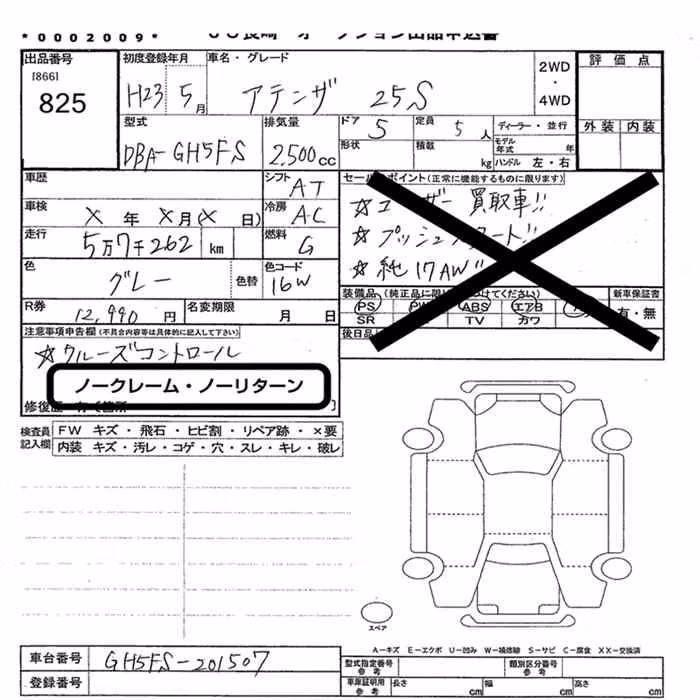 *0002009*
オークション出品申込書
出品番号 [866] 825
初度登録年月 H23 5月
車名・グレード アテンザ 25S
2WD・4WD
評価点
外装 内装
型式 DBA-GH5FS
排気量 2,500cc
ドア 5
形状
定員 5人
積載 kg
ディーラー・並行
モデル年式 年
ハンドル 左・右
車歴
シフト AT
車検 X年X月(X日)
冷房 AC
走行 5万7千262 km
燃料 G
色 グレー
色替
色コード 16W
R券 12,990円
名変期限 月 日
セールスポイント(正常に機能するものに限ります)
☆ユーザー買取車!!
☆プッシュスタート!!
☆純17AW
装備品
PS PW ABS エアB
SR TV カワ
新車保証書 有・無
後日品
注意事項申告欄(不具合内容等は具体的に記入して下さい)
☆クルーズコントロール
ノークレーム・ノーリターン
検査員記入欄
FW キズ・飛石・ヒビ割・リペア跡・×要
内装 キズ・汚レ・コゲ・穴・スレ・キレ・破レ
スペア
A-キズ E-エクボ U-凹み W-補修跡 S-サビ C-腐食 XX-交換済
車台番号 GH5FS-201507
登録番号
型式指定番号 参考
類別区分番号 参考
車庫証明用 参考 長さ cm 幅 cm 高さ cm